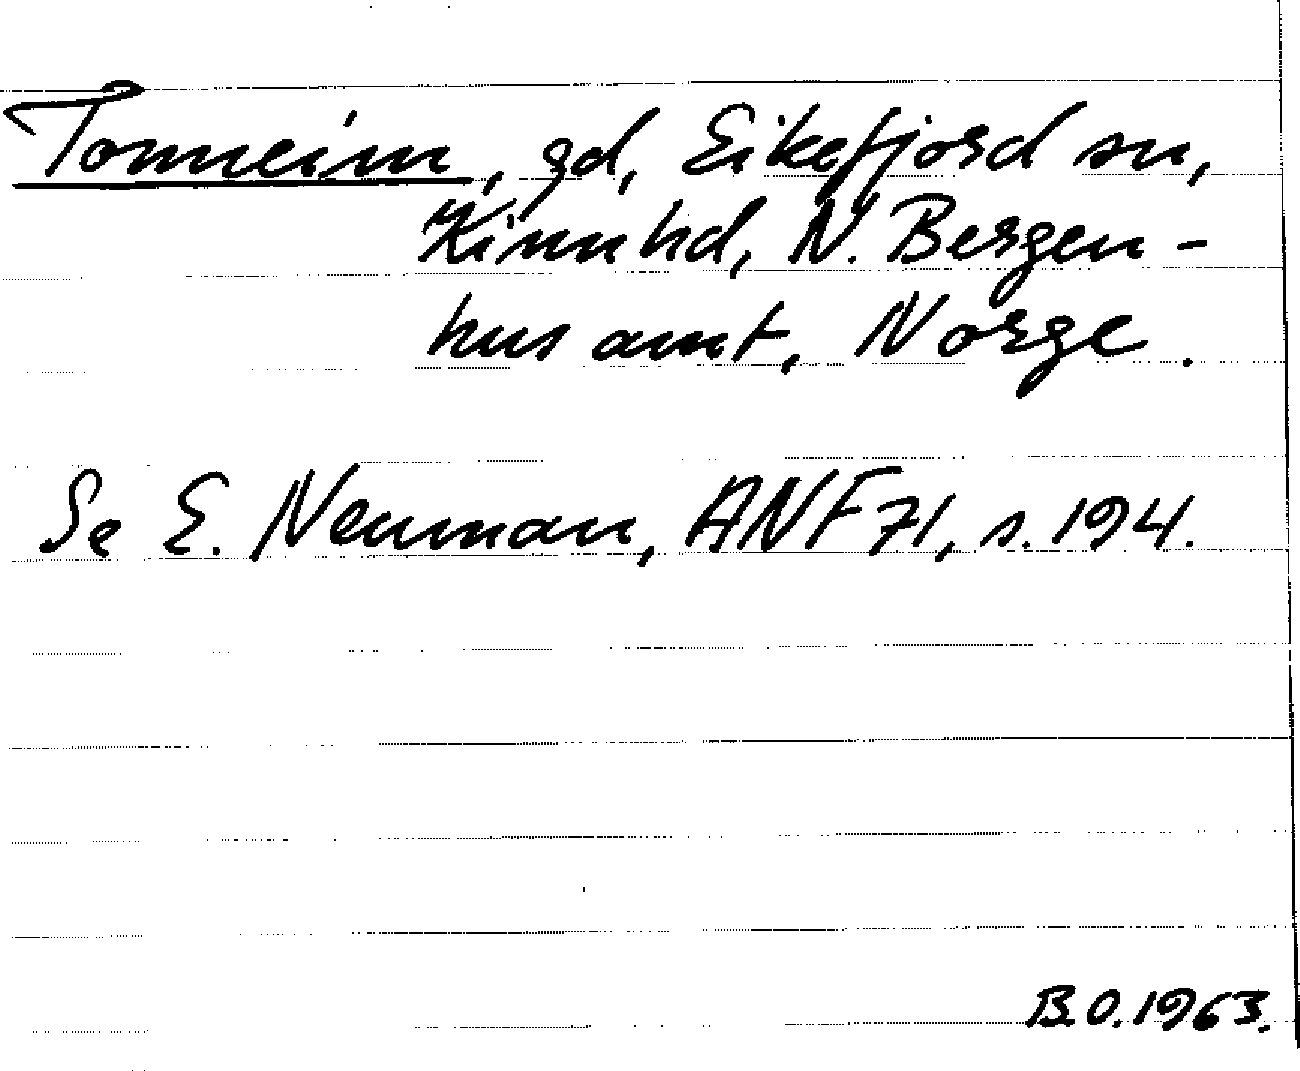 Tonneim, gd, Eikefjord sn,
Kinn hd, N. Bergen-
hus amt, Norge.
Se E. Neuman, ANF 71, s. 194.
B.O. 1963.